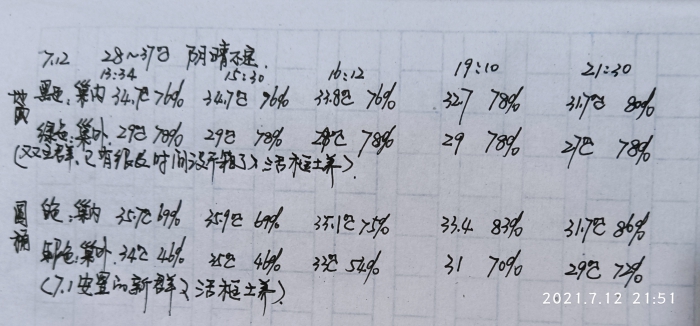 7.12 28~37℃ 阴晴不定.
13:34 15:30 16:12 19:10 21:30
地窝 黑色:巢内 34.7℃ 76% 34.7℃ 76% 33.8℃ 76% 32.7 78% 31.7℃ 80%
绿色:巢外. 29℃ 78% 29℃ 78% 28℃ 78% 29 78% 27℃ 78%
(双王群,已有很长时间没开箱了,活框土养).
圆桶 白色:巢内 35.7℃ 69% 35.9℃ 69% 35.1℃ 75% 33.4 83% 31.7℃ 86%
色:巢外. 34℃ 46% 35℃ 46% 33℃ 54% 31 70% 29℃ 72%
(7.1安置的新群,活框土养).
2021.7.12 21:51